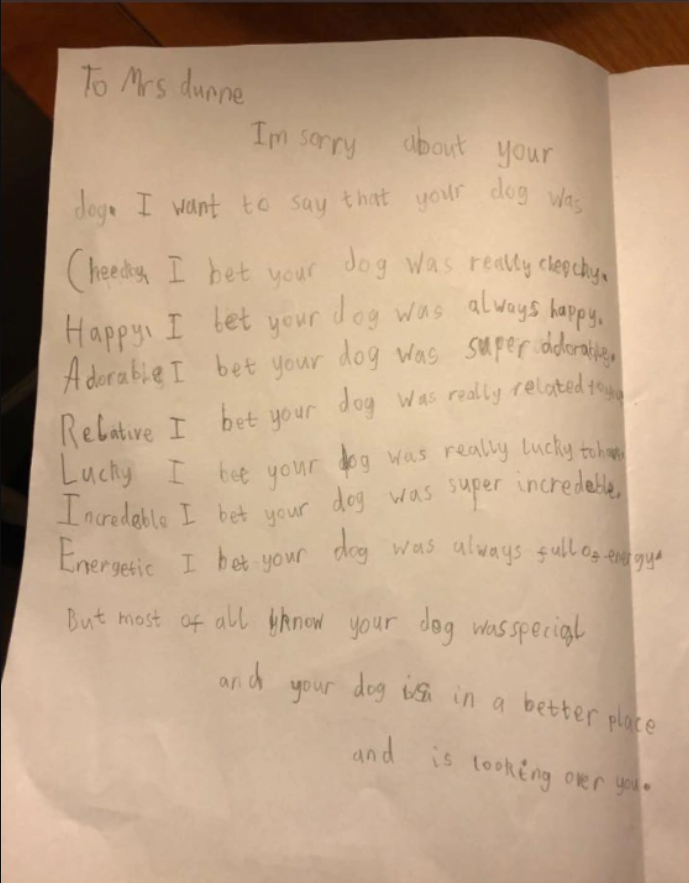 To Mrs dunne
Im sorry about your
dog. I want to say that your dog was
Cheeky, I bet your dog was really cheecky.
Happy, I bet your dog was always happy.
Adorable I bet your dog was super adorable.
Relative I bet your dog was really related to you
Lucky I bet your dog was really lucky to have
Incredable I bet your dog was super incredeble.
Energetic I bet your dog was always full of energy.
But most of all I know your dog was special
and your dog is in a better place
and is looking over you.